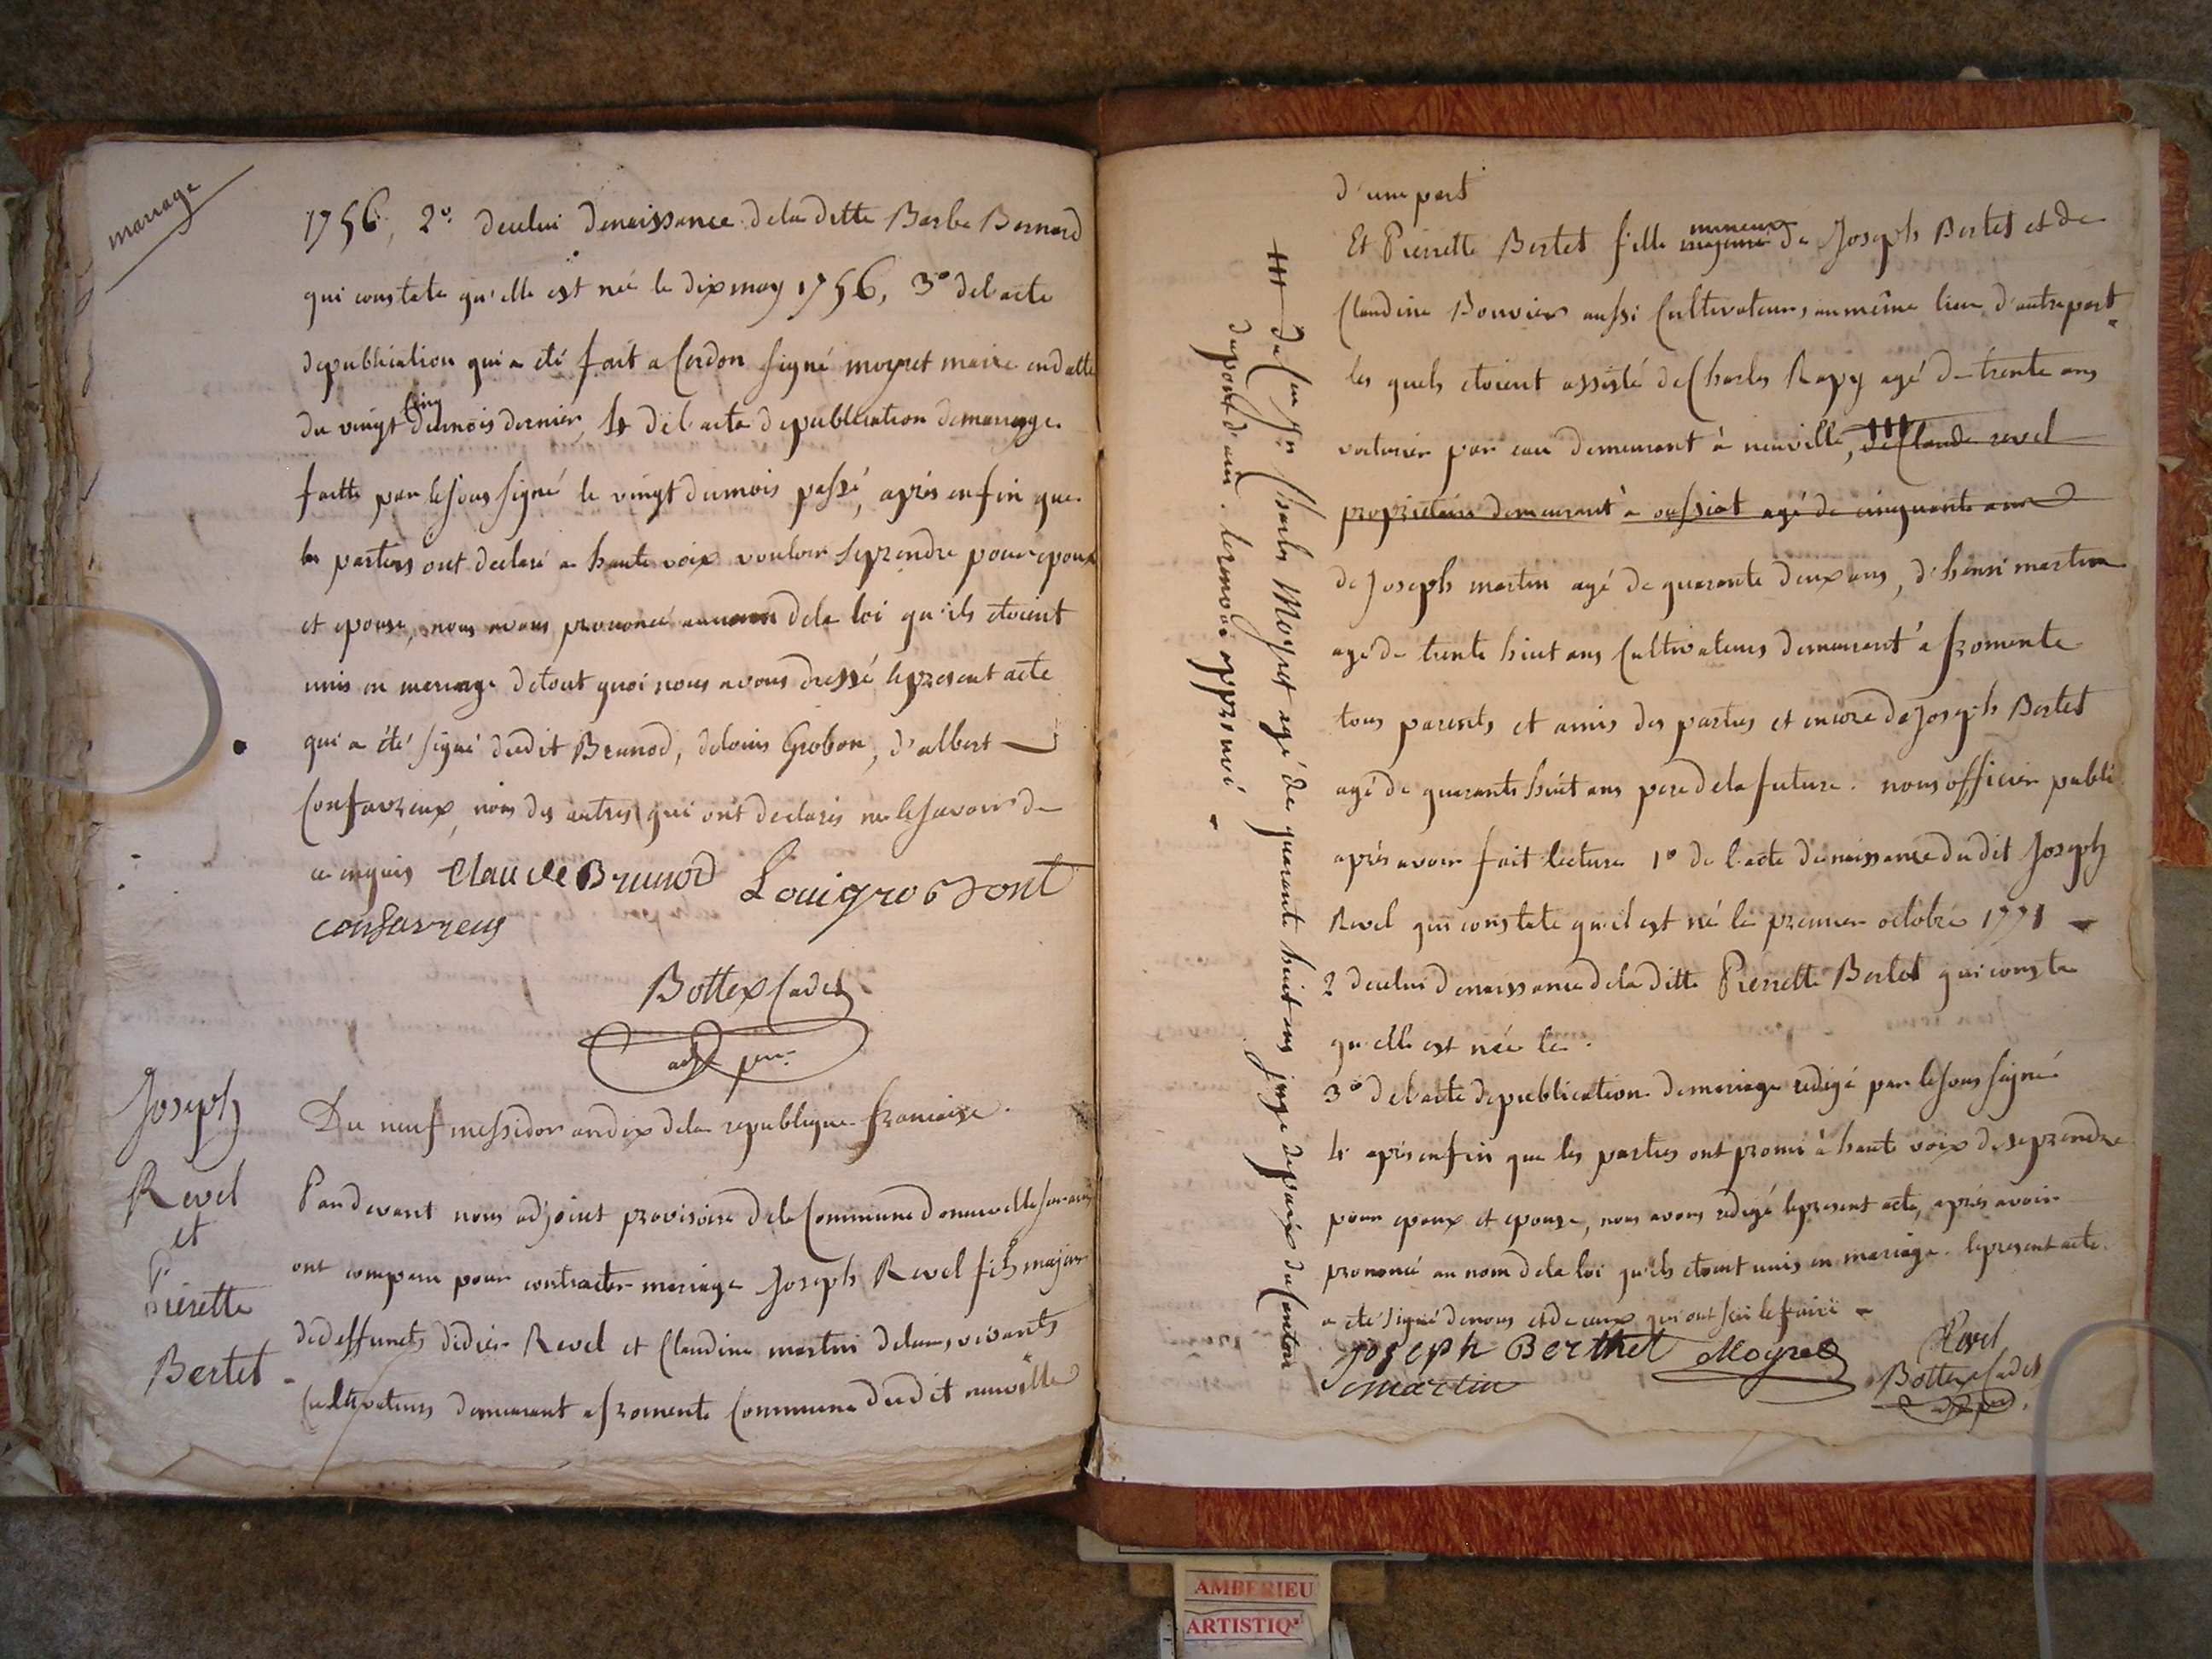 mariage
1756, 2º. decelui denaissance dela ditte Barbe Bernard
qui constate qu'elle est née le dix may 1756, 3º del'acte
depublication qui a été fait a Cerdon signé moyret maire endatte
du vingt cinq dumois dernier, 4 del'acte depublication demariage
faitte par lesous signé le vingt dumois passé, après enfin que
les parties ont declaré a haute voix vouloir seprendre pour epoux
et epouse, nous avons prononcé aunom dela loi qu'ils etoient
unis en mariage detout quoi nous avons dressé lepresent acte
qui a été signé dudit Brunod, delouis Grobon, d'albert
Confavreux, non des autres qui ont declarés ne lesavoir de
ce enquis Claude Brunod Louigrobont
confavreux
Bottex Cadet
adjt pro.
Joseph
Revel
et
Pierette
Bertet
Du neuf messidor andix dela republique francaise.
Pardevant nous adjoint provisoire dela Commune deneuville surain
ont comparu pour contracter mariage Joseph Revel fils majeur
dedeffunets didier Revel et Claudine martin deleurs vivants
Cultivateurs demeurant afromente Commune dudit neuville
d'une part
Et Pierrette Bertet fille mineure de Joseph Bertet et de
Claudine Bouvier aussi Cultivateurs aumême lieu d'autrepart
les quels etoient assisté deCharles Rapy agé de trente ans
voiturier par eau demeurant à neuville, de Claude revel
proprietaire demeurant à oussiat agé de cinquante ans
de Joseph martin agé de quarante deux ans, d'henri martin
agé de trente huit ans Cultivateurs demeurant à fromente
tous parents et amis des parties et encore de Joseph Bertet
agé de quarante huit ans pere dela future. nous officier public
après avoir fait lecture 1º de l'acte denaissance du dit Joseph
Revel qui constate qu'il est né le premier octobre 1771
2 decelui denaissance dela ditte Pierrette Bertet qui conste
qu'elle est née le .
3º del'acte depublication demariage redigé par lesous signé
4 après enfin que les parties ont promi à haute voix de seprendre
pour epoux et epouse, nous avons redigé leprésent acte, après avoir
prononcé au nom dela loi qu'ils etoient unis en mariage. lepresent acte
a été signé denous et de ceux qui ont sçu lefaire
Joseph Berthet Moyret Revel
martin Bottex Cadet
adjt pro.
Charles Moyret agé de quarante huit ans juge depaix du Canton
depont d'ain. lerenvoi approuvé
AMBERIEU
ARTISTIQ